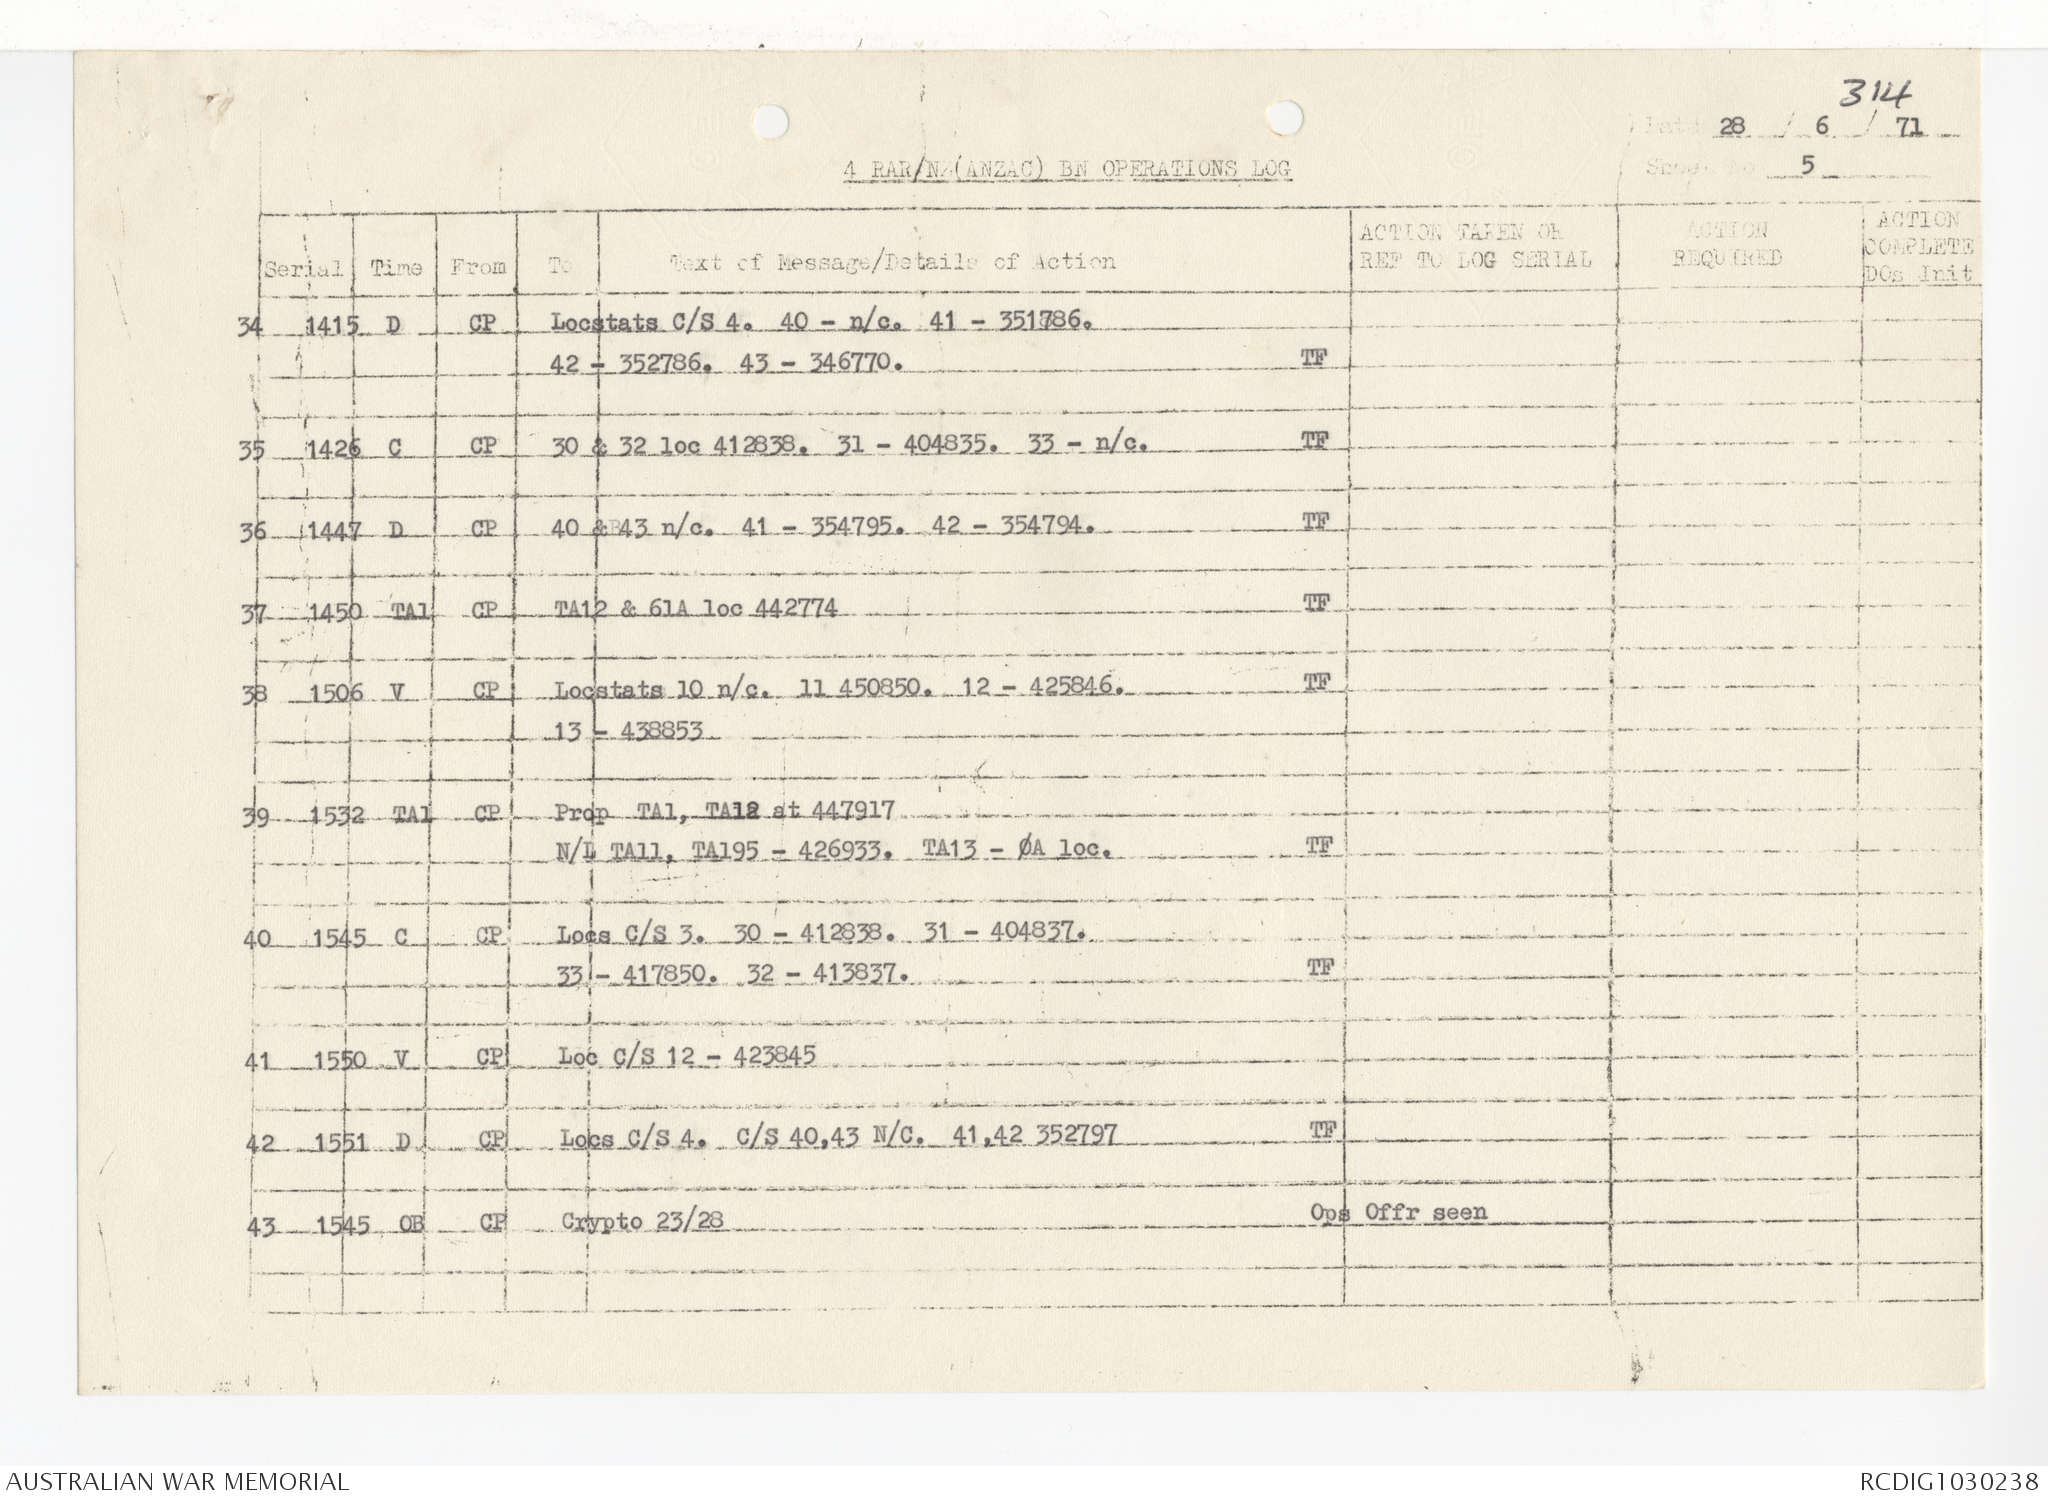 314
Date 28 / 6 / 71
4 RAR/NZ(ANZAC) BN OPERATIONS LOG
Sheet No 5
Serial Time From To Text of Message/Details of Action ACTION TAKEN OR REF TO LOG SERIAL ACTION REQUIRED ACTION COMPLETE DOs Init
34 1415 D CP Locstats C/S 4. 40 - n/c. 41 - 351786.
42 - 352786. 43 - 346770. TF
35 1426 C CP 30 & 32 loc 412838. 31 - 404835. 33 - n/c. TF
36 1447 D CP 40 & 43 n/c. 41 - 354795. 42 - 354794. TF
37 1450 TA1 CP TA12 & 61A loc 442774 TF
38 1506 V CP Locstats 10 n/c. 11 450850. 12 - 425846. TF
13 - 438853
39 1532 TA1 CP Prop TA1, TA12 at 447917
N/L TA11, TA195 - 426933. TA13 - ØA loc. TF
40 1545 C CP Locs C/S 3. 30 - 412838. 31 - 404837.
33 - 417850. 32 - 413837. TF
41 1550 V CP Loc C/S 12 - 423845
42 1551 D CP Locs C/S 4. C/S 40,43 N/C. 41,42 352797 TF
43 1545 OB CP Crypto 23/28 Ops Offr seen
AUSTRALIAN WAR MEMORIAL
RCDIG1030238